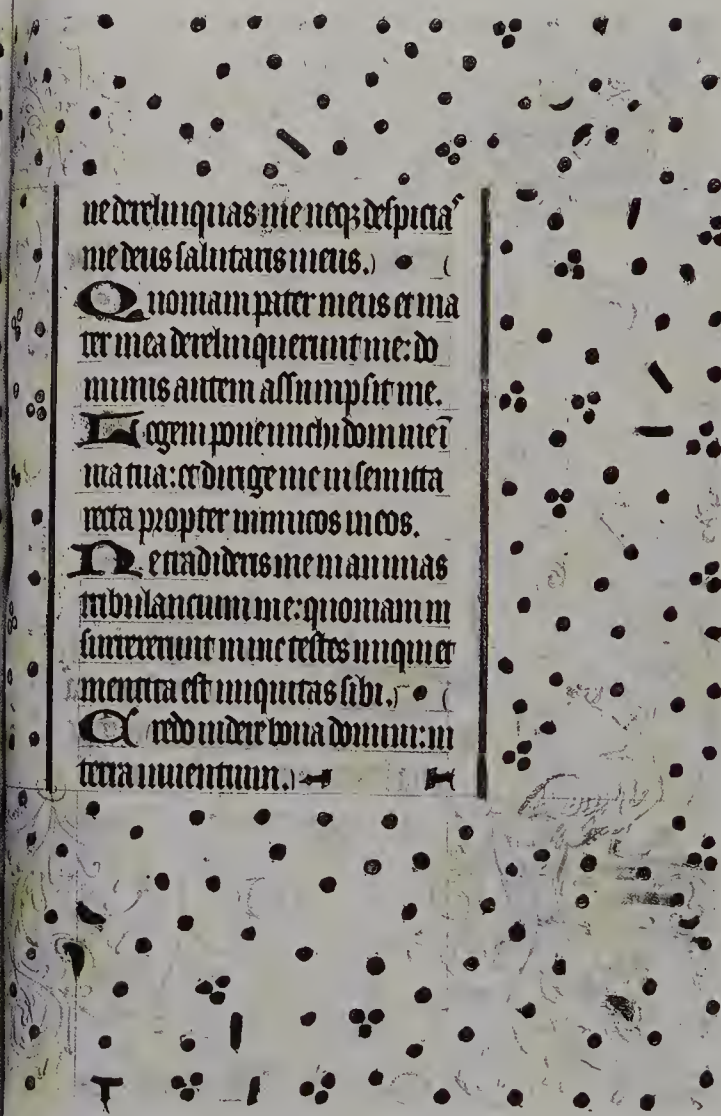 ne derelinquas me neqꝫ despicias
me deus salutaris meus.
Quoniam pater meus et ma
ter mea derelinquerunt me: do
minus autem assumpsit me.
Legem pone michi domine ī
via tua: et dirige me in semita
recta propter inimicos meos.
Ne tradideris me in animas
tribulancium me: quoniam in
surrexerunt in me testes iniqui et
mentita est iniquitas sibi.
Credo videre bona domini: in
terra viventium.